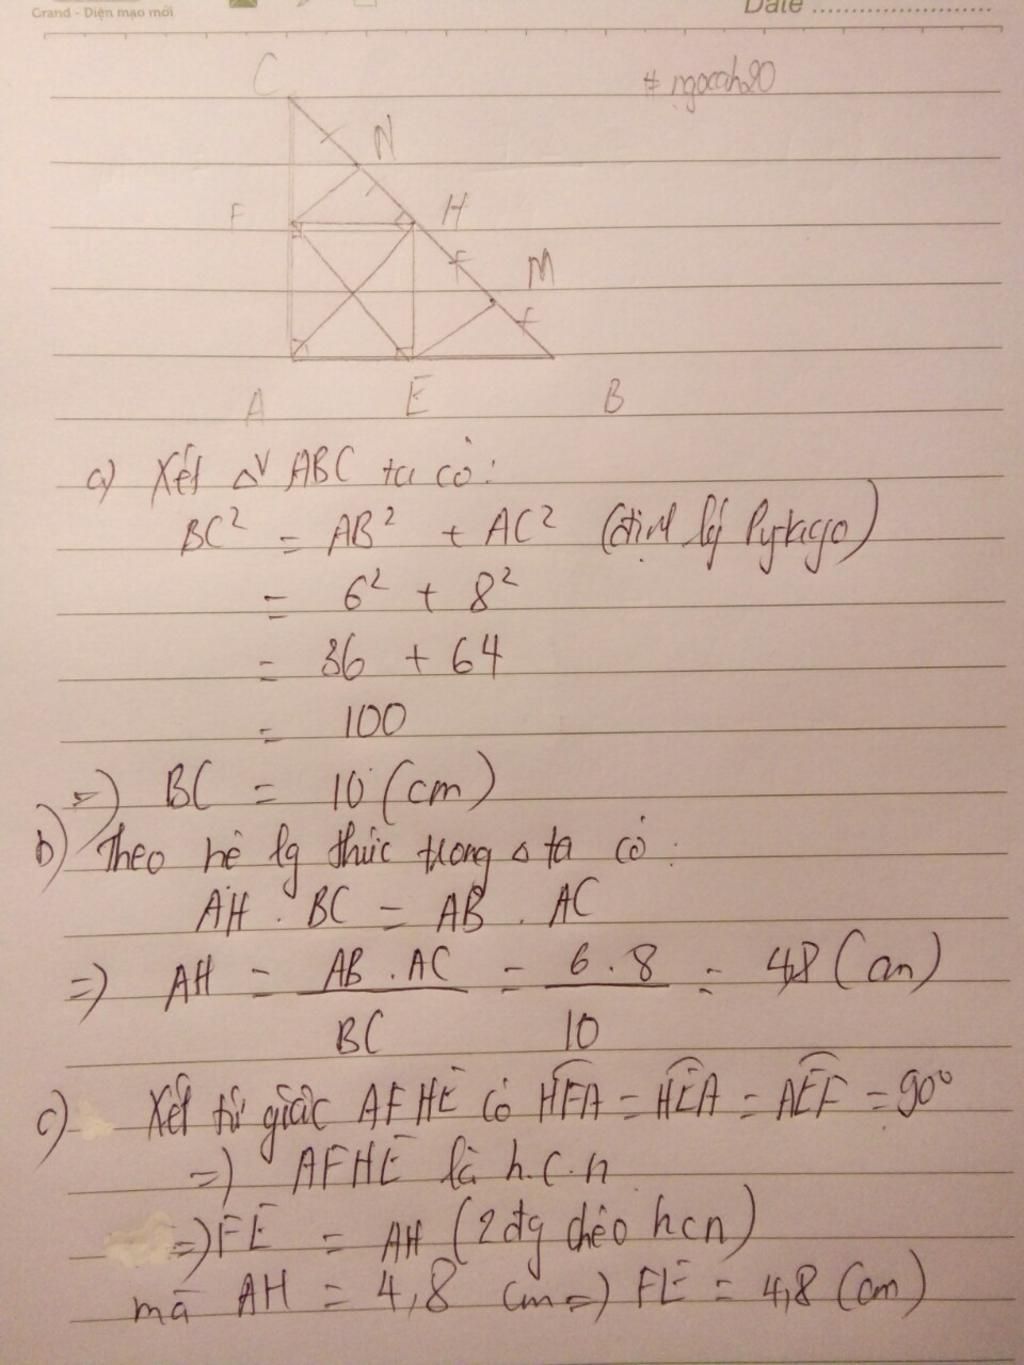 Grand - Diện mạo mới
Date
# ngocanh20
C
N
F
H
M
A E B
a) Xét Δv ABC ta có:
BC² = AB² + AC² (định lý Pytago)
= 6² + 8²
= 36 + 64
= 100
=) BC = 10 (cm)
b) Theo hệ lg thức trong Δ ta có:
AH . BC = AB . AC
=) AH = AB . AC / BC = 6 . 8 / 10 = 4,8 (cm)
c) Xét tứ giác AFHE có HFA = HEA = AEF = 90°
=) AFHE là h.c.n
=) FE = AH (2 đg chéo hcn)
mà AH = 4,8 cm =) FE = 4,8 (cm)